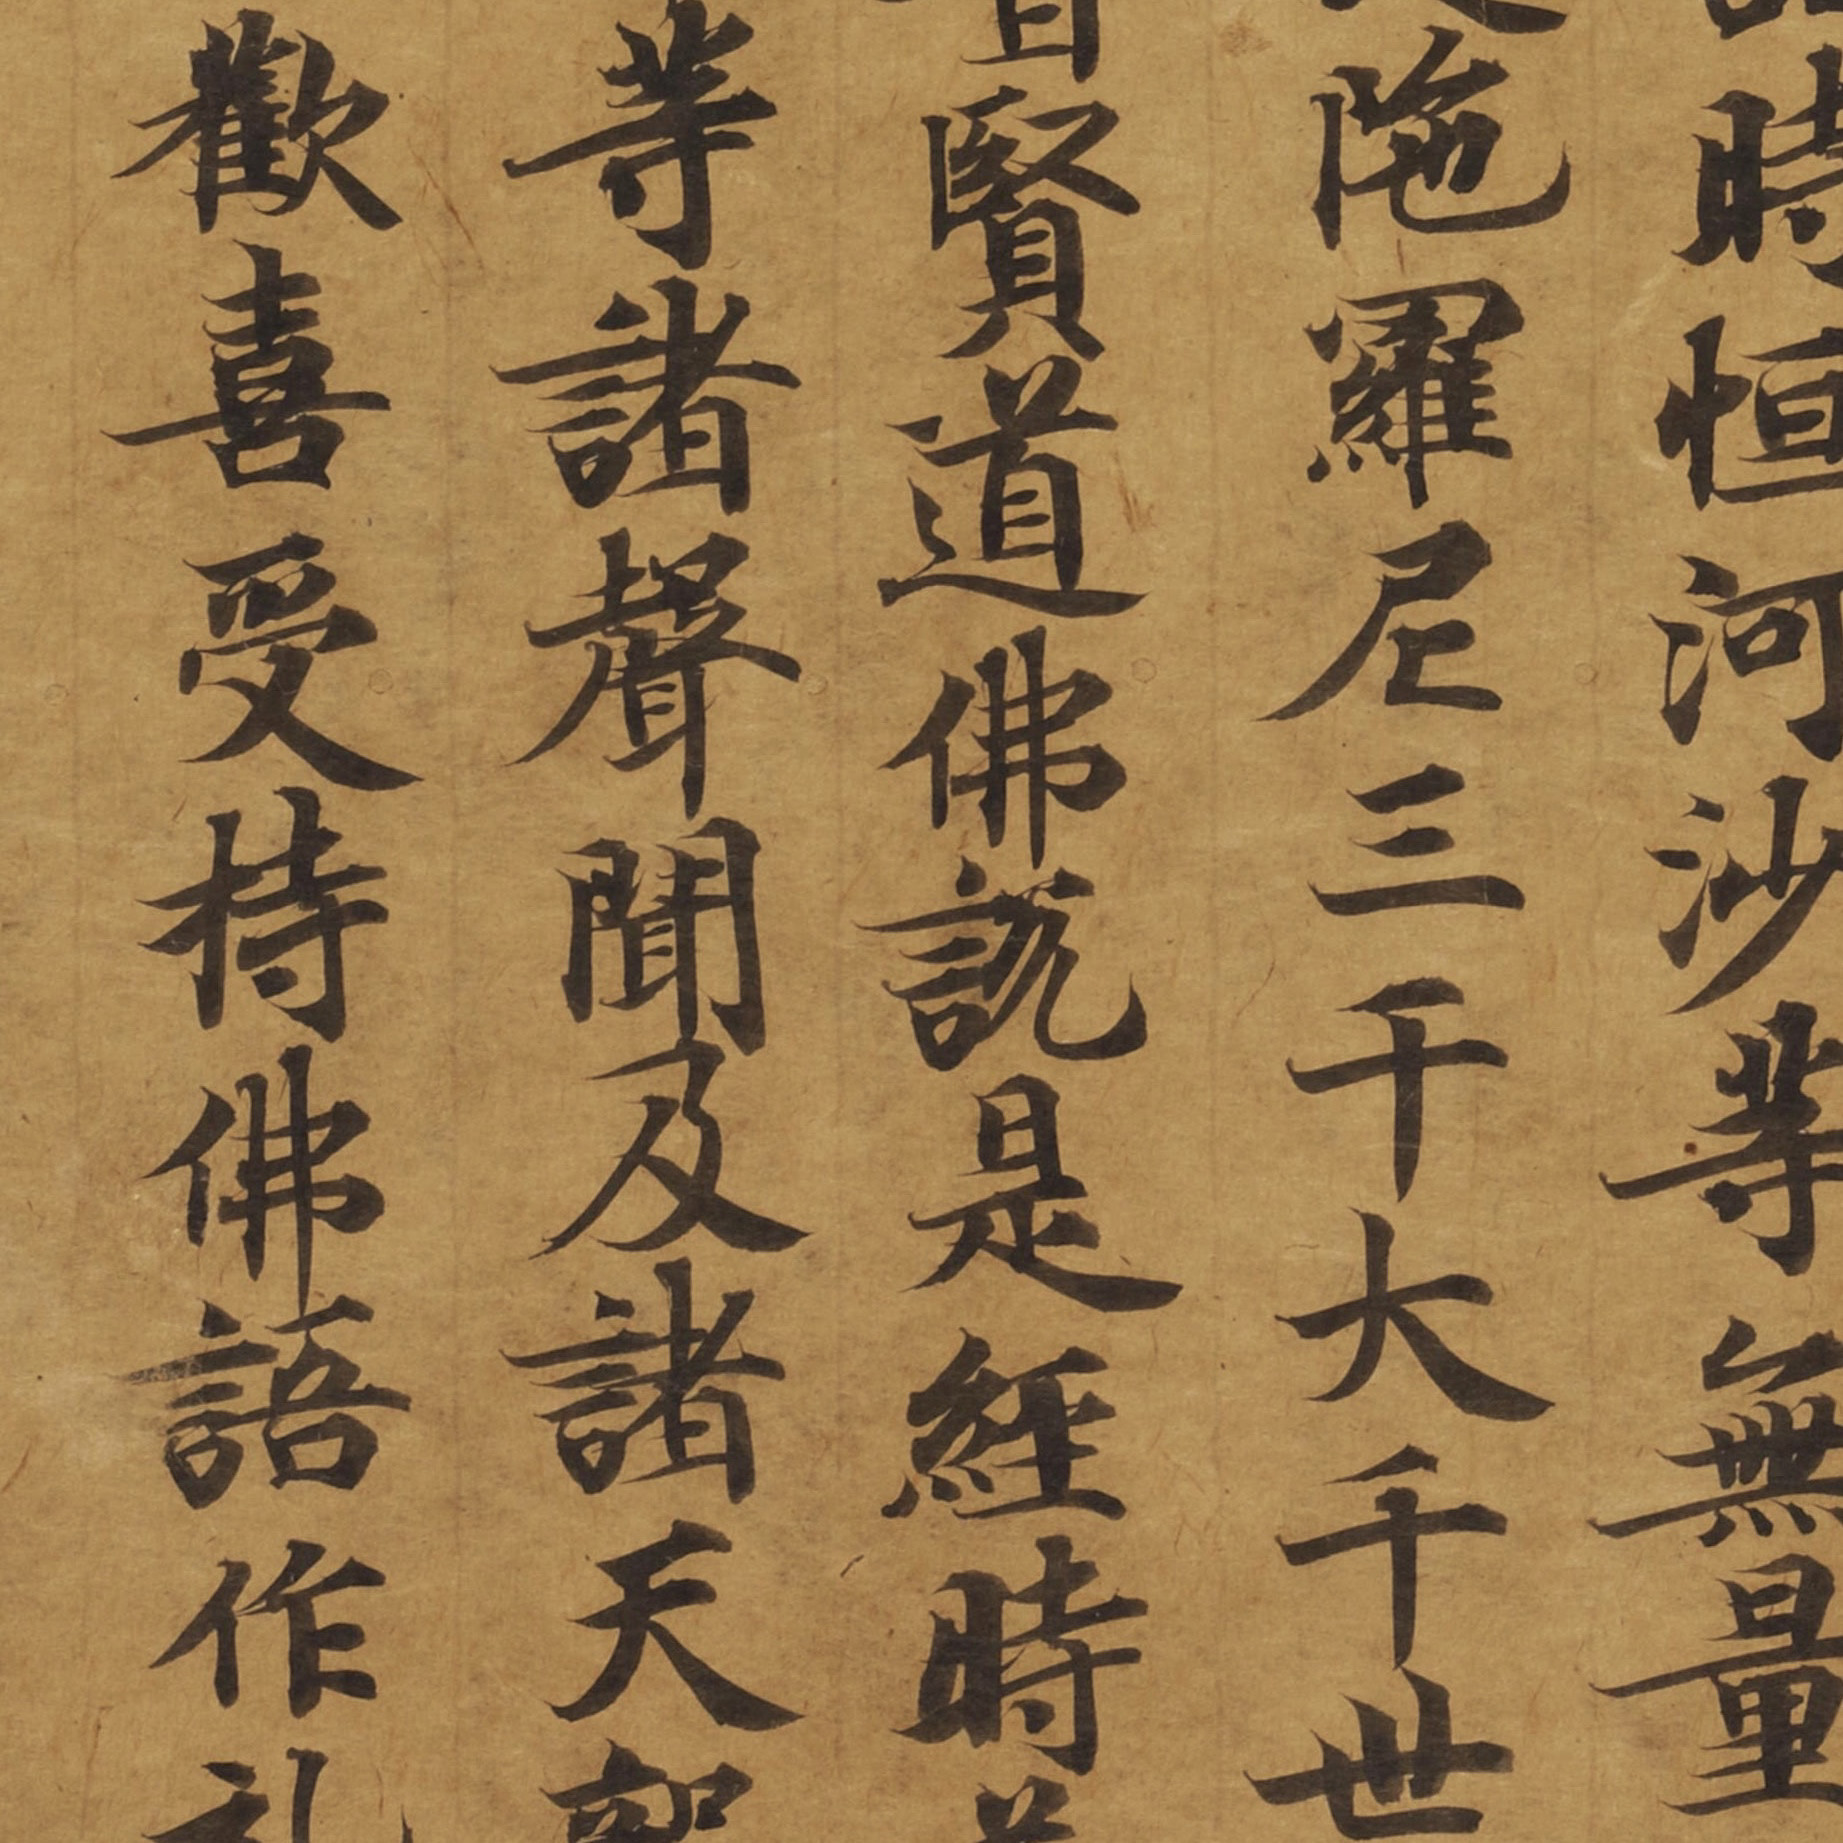 時恒河沙等無量
陁羅尼三千大千世
賢道佛說是經時
等諸聲聞及諸天
歡喜受持佛語作礼